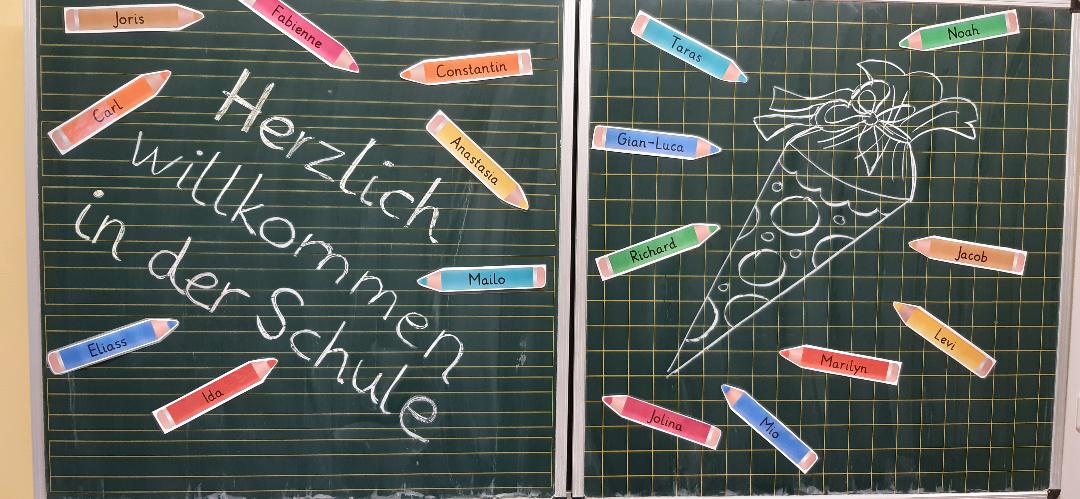 Joris
Fabienne
Constantin
Carl
Herzlich
willkommen
in der Schule
Anastasia
Mailo
Eliass
Ida
Taras
Noah
Gian-Luca
Richard
Jacob
Levi
Marilyn
Jolina
Mio